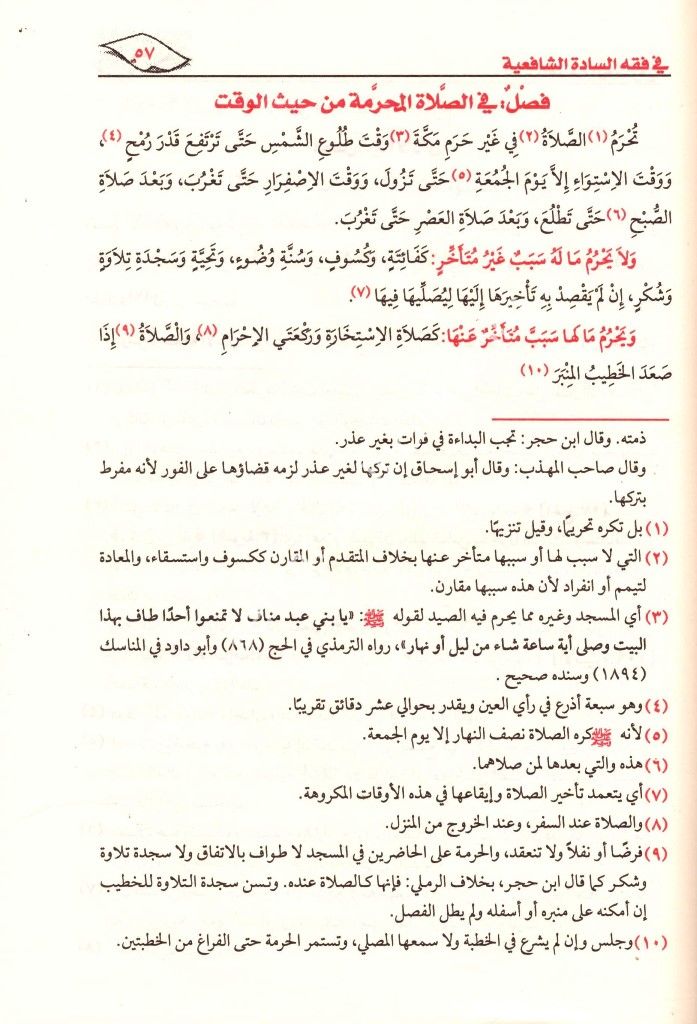 في فقه السادة الشافعية
٥٧
فصْلٌ: في الصَّلاة المحرَّمة من حيث الوقت
تُحْرَمُ (١) الصَّلاَةُ (٢) فِي غَيْرِ حَرَمِ مَكَّةَ (٣) وَقْتَ طُلُوعِ الشَّمْسِ حَتَّى تَرْتَفِعَ قَدْرَ رُمْحٍ (٤)،
وَوَقْتَ الاِسْتِوَاءِ إِلاَّ يَوْمَ الجُمُعَةِ (٥) حَتَّى تَزُولَ، وَوَقْتَ الاِصْفِرَارِ حَتَّى تَغْرُبَ، وَبَعْدَ صَلاَةِ
الصُّبْحِ (٦) حَتَّى تَطْلُعَ، وَبَعْدَ صَلاَةِ العَصْرِ حَتَّى تَغْرُبَ.
وَلاَ يَحْرُمُ مَا لَهُ سَبَبٌ غَيْرُ مُتَأَخِّرٍ: كَفَائِتَةٍ، وَكُسُوفٍ، وَسُنَّةِ وُضُوءٍ، وَتَحِيَّةٍ وَسَجْدَةِ تِلاَوَةٍ
وَشُكْرٍ، إِنْ لَمْ يَقْصِدْ بِهِ تَأْخِيرَهَا إِلَيْهَا لِيُصَلِّيَهَا فِيهَا (٧).
وَيَحْرُمُ مَا لها سَبَبٌ مُتَأَخِّرٌ عَنْهَا: كَصَلاَةِ الاِسْتِخَارَةِ وَرَكْعَتَي الإِحْرَامِ (٨)، وَالصَّلاَةُ (٩) إِذَا
صَعَدَ الخَطِيبُ المِنْبَرَ (١٠)
ذمته. وقال ابن حجر: تجب البداءة في فوات بغير عذر.
وقال صاحب المهذب: وقال أبو إسحاق إن تركها لغير عذر لزمه قضاؤها على الفور لأنه مفرط
بتركها.
(١) بل تكره تحريمًا، وقيل تنزيهًا.
(٢) التي لا سبب لها أو سببها متأخر عنها بخلاف المتقدم أو المقارن ككسوف واستسقاء، والمعادة
لتيمم أو انفراد لأن هذه سببها مقارن.
(٣) أي المسجد وغيره مما يحرم فيه الصيد لقوله ﷺ: «يا بني عبد مناف لا تمنعوا أحدًا طاف بهذا
البيت وصلى أية ساعة شاء من ليل أو نهار»، رواه الترمذي في الحج (٨٦٨) وأبو داود في المناسك
(١٨٩٤) وسنده صحيح .
(٤) وهو سبعة أذرع في رأي العين ويقدر بحوالي عشر دقائق تقريبًا.
(٥) لأنه ﷺ كره الصلاة نصف النهار إلا يوم الجمعة.
(٦) هذه والتي بعدها لمن صلاهما.
(٧) أي يتعمد تأخير الصلاة وإيقاعها في هذه الأوقات المكروهة.
(٨) والصلاة عند السفر، وعند الخروج من المنزل.
(٩) فرضًا أو نفلاً ولا تنعقد، والحرمة على الحاضرين في المسجد لا طواف بالاتفاق ولا سجدة تلاوة
وشكر كما قال ابن حجر، بخلاف الرملي: فإنها كالصلاة عنده. وتسن سجدة التلاوة للخطيب
إن أمكنه على منبره أو أسفله ولم يطل الفصل.
(١٠) وجلس وإن لم يشرع في الخطبة ولا سمعها المصلي، وتستمر الحرمة حتى الفراغ من الخطبتين.